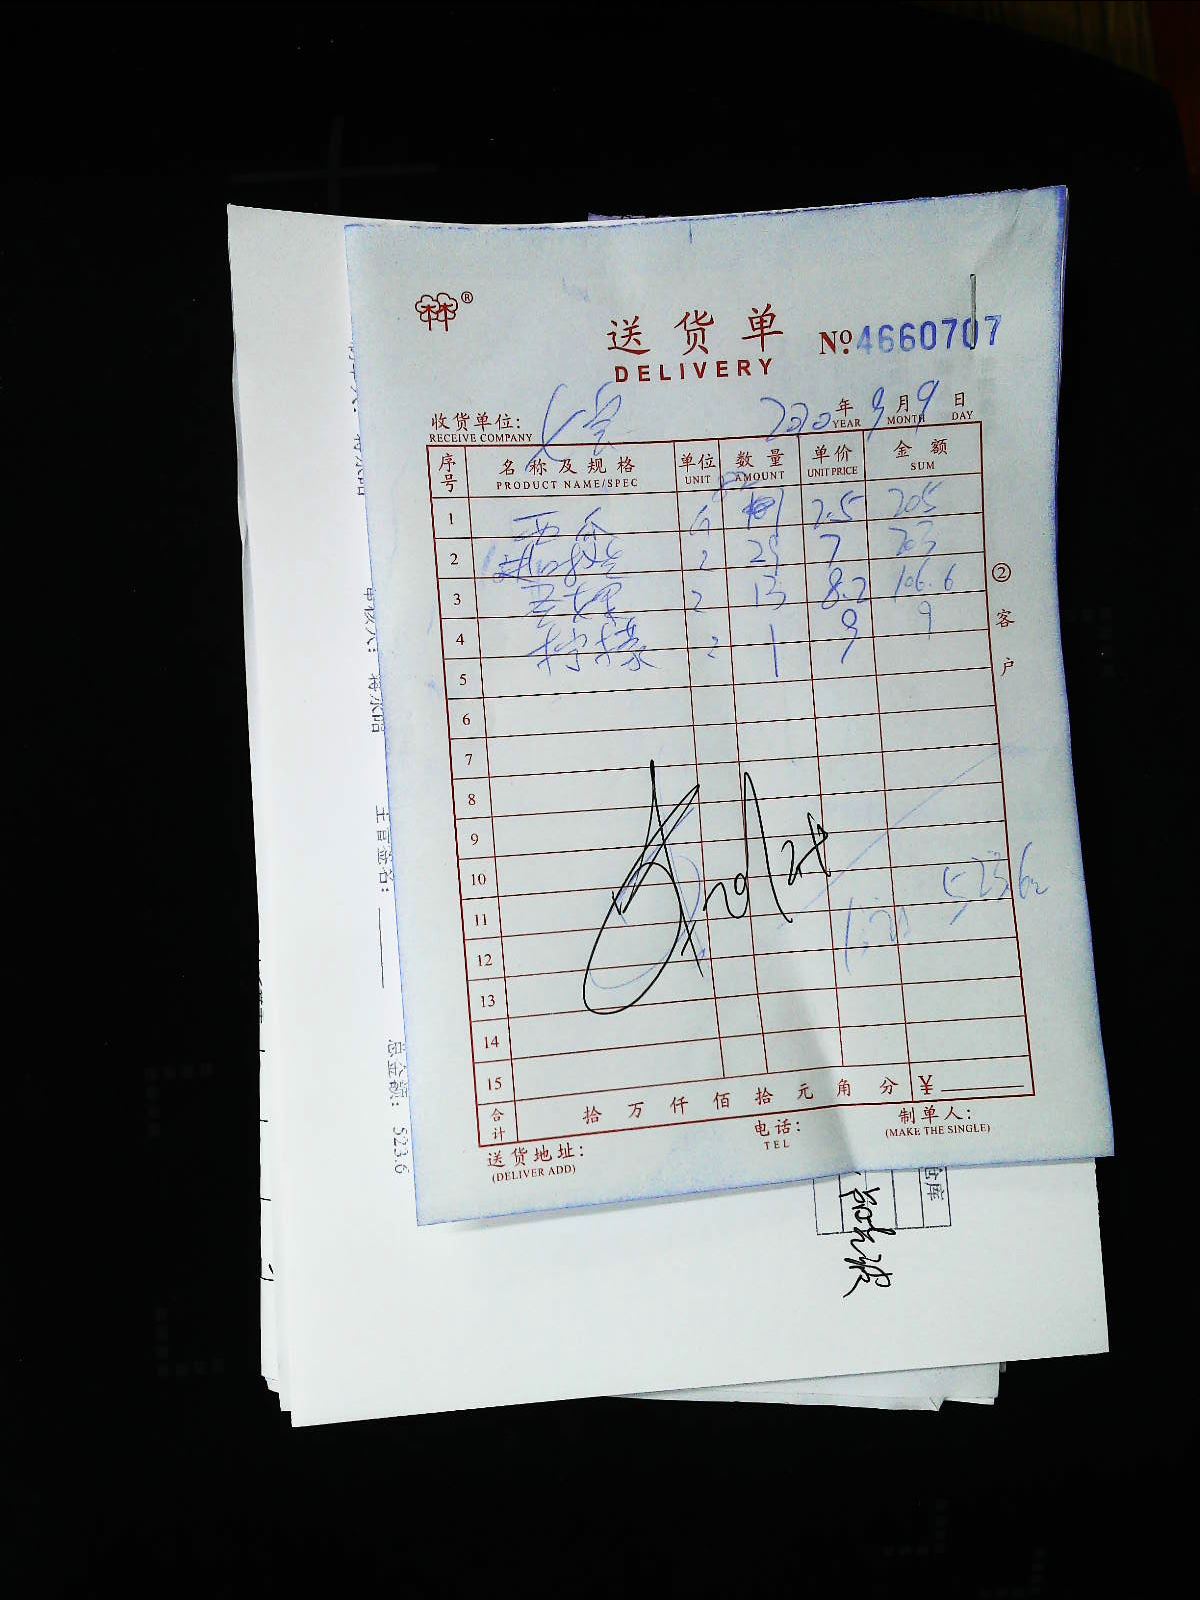 林林®
送货单
DELIVERY
№ 4660707
收货单位:
RECEIVE COMPANY
2020 年 YEAR 9 月 MONTH 9 日 DAY
序号 名称及规格 PRODUCT NAME/SPEC 单位 UNIT 数量 AMOUNT 单价 UNIT PRICE 金额 SUM
82
1 西瓜 斤 2.5 205
2 29 7 203
3 13 8.2 106.6
4 柠檬 1 9 9
5
6
7
8
9
10
523.6
11
12
13
14
15
合计 拾 万 仟 佰 拾 元 角 分 ¥
送货地址:
(DELIVER ADD)
电话:
TEL
制单人:
(MAKE THE SINGLE)
② 客户
审核人:
主管签名:
总金额: 523.6
仓库